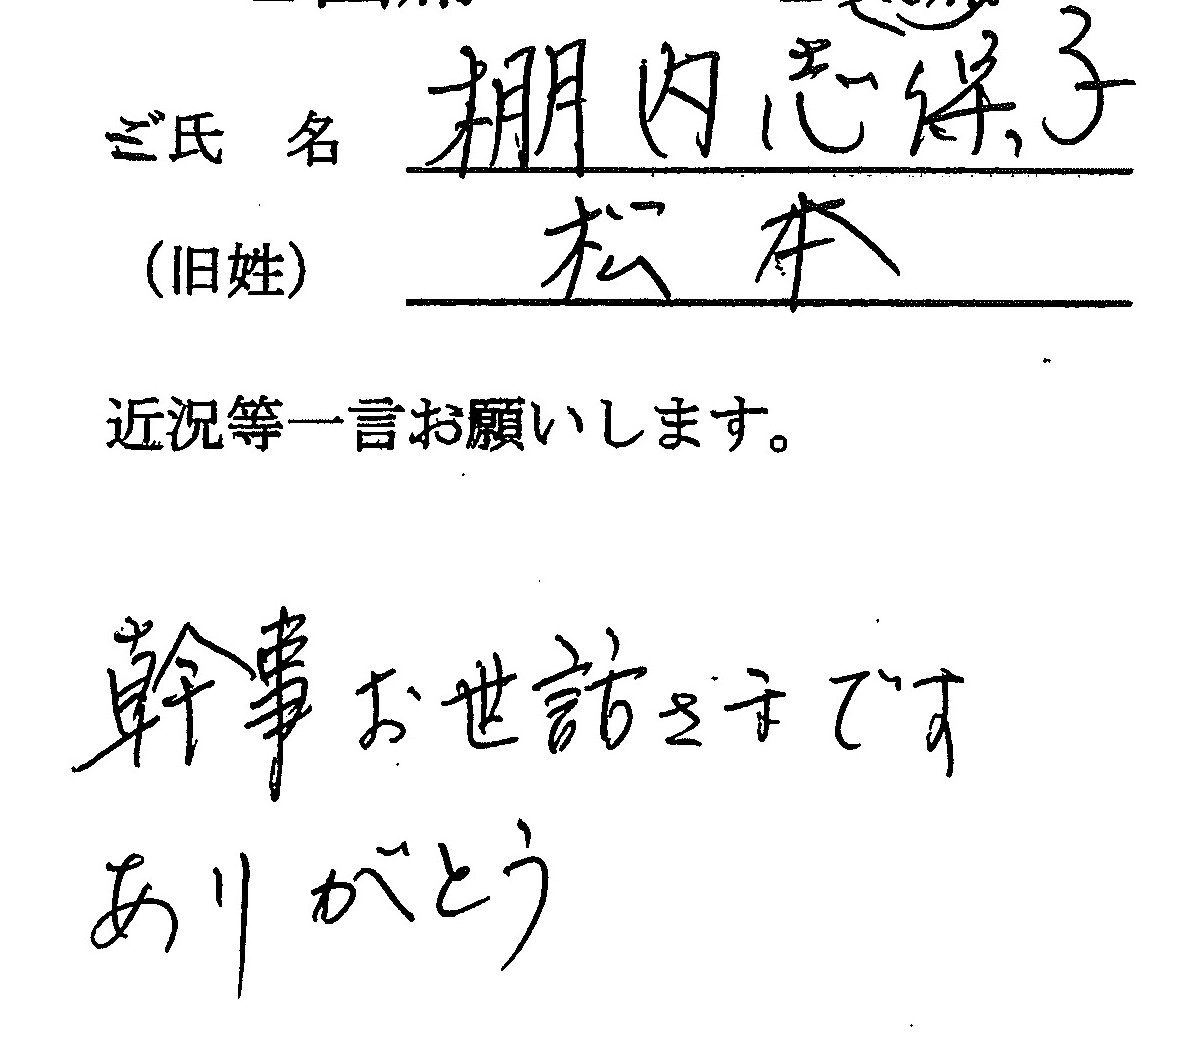 ご氏 名 棚内志保子
（旧姓） 松本
近況等一言お願いします。
幹事お世話さまです
ありがとう